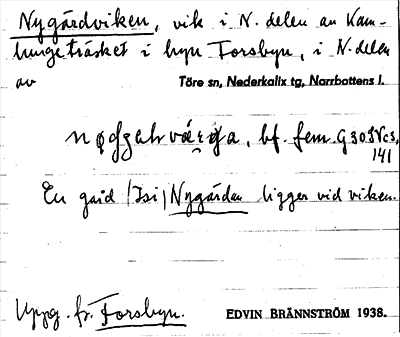 Nygårdviken, vik i N. delen av Kam-
lungeträsket i byn Forsbyn, i N. delen
av Töre sn, Nederkalix tg, Norrbottens l.
bf. fem. G 30 Vc3,
141
En gård (Isi) Nygården ligger vid viken.
Uppg. fr. Forsbyn. EDVIN BRÄNNSTRÖM 1938.